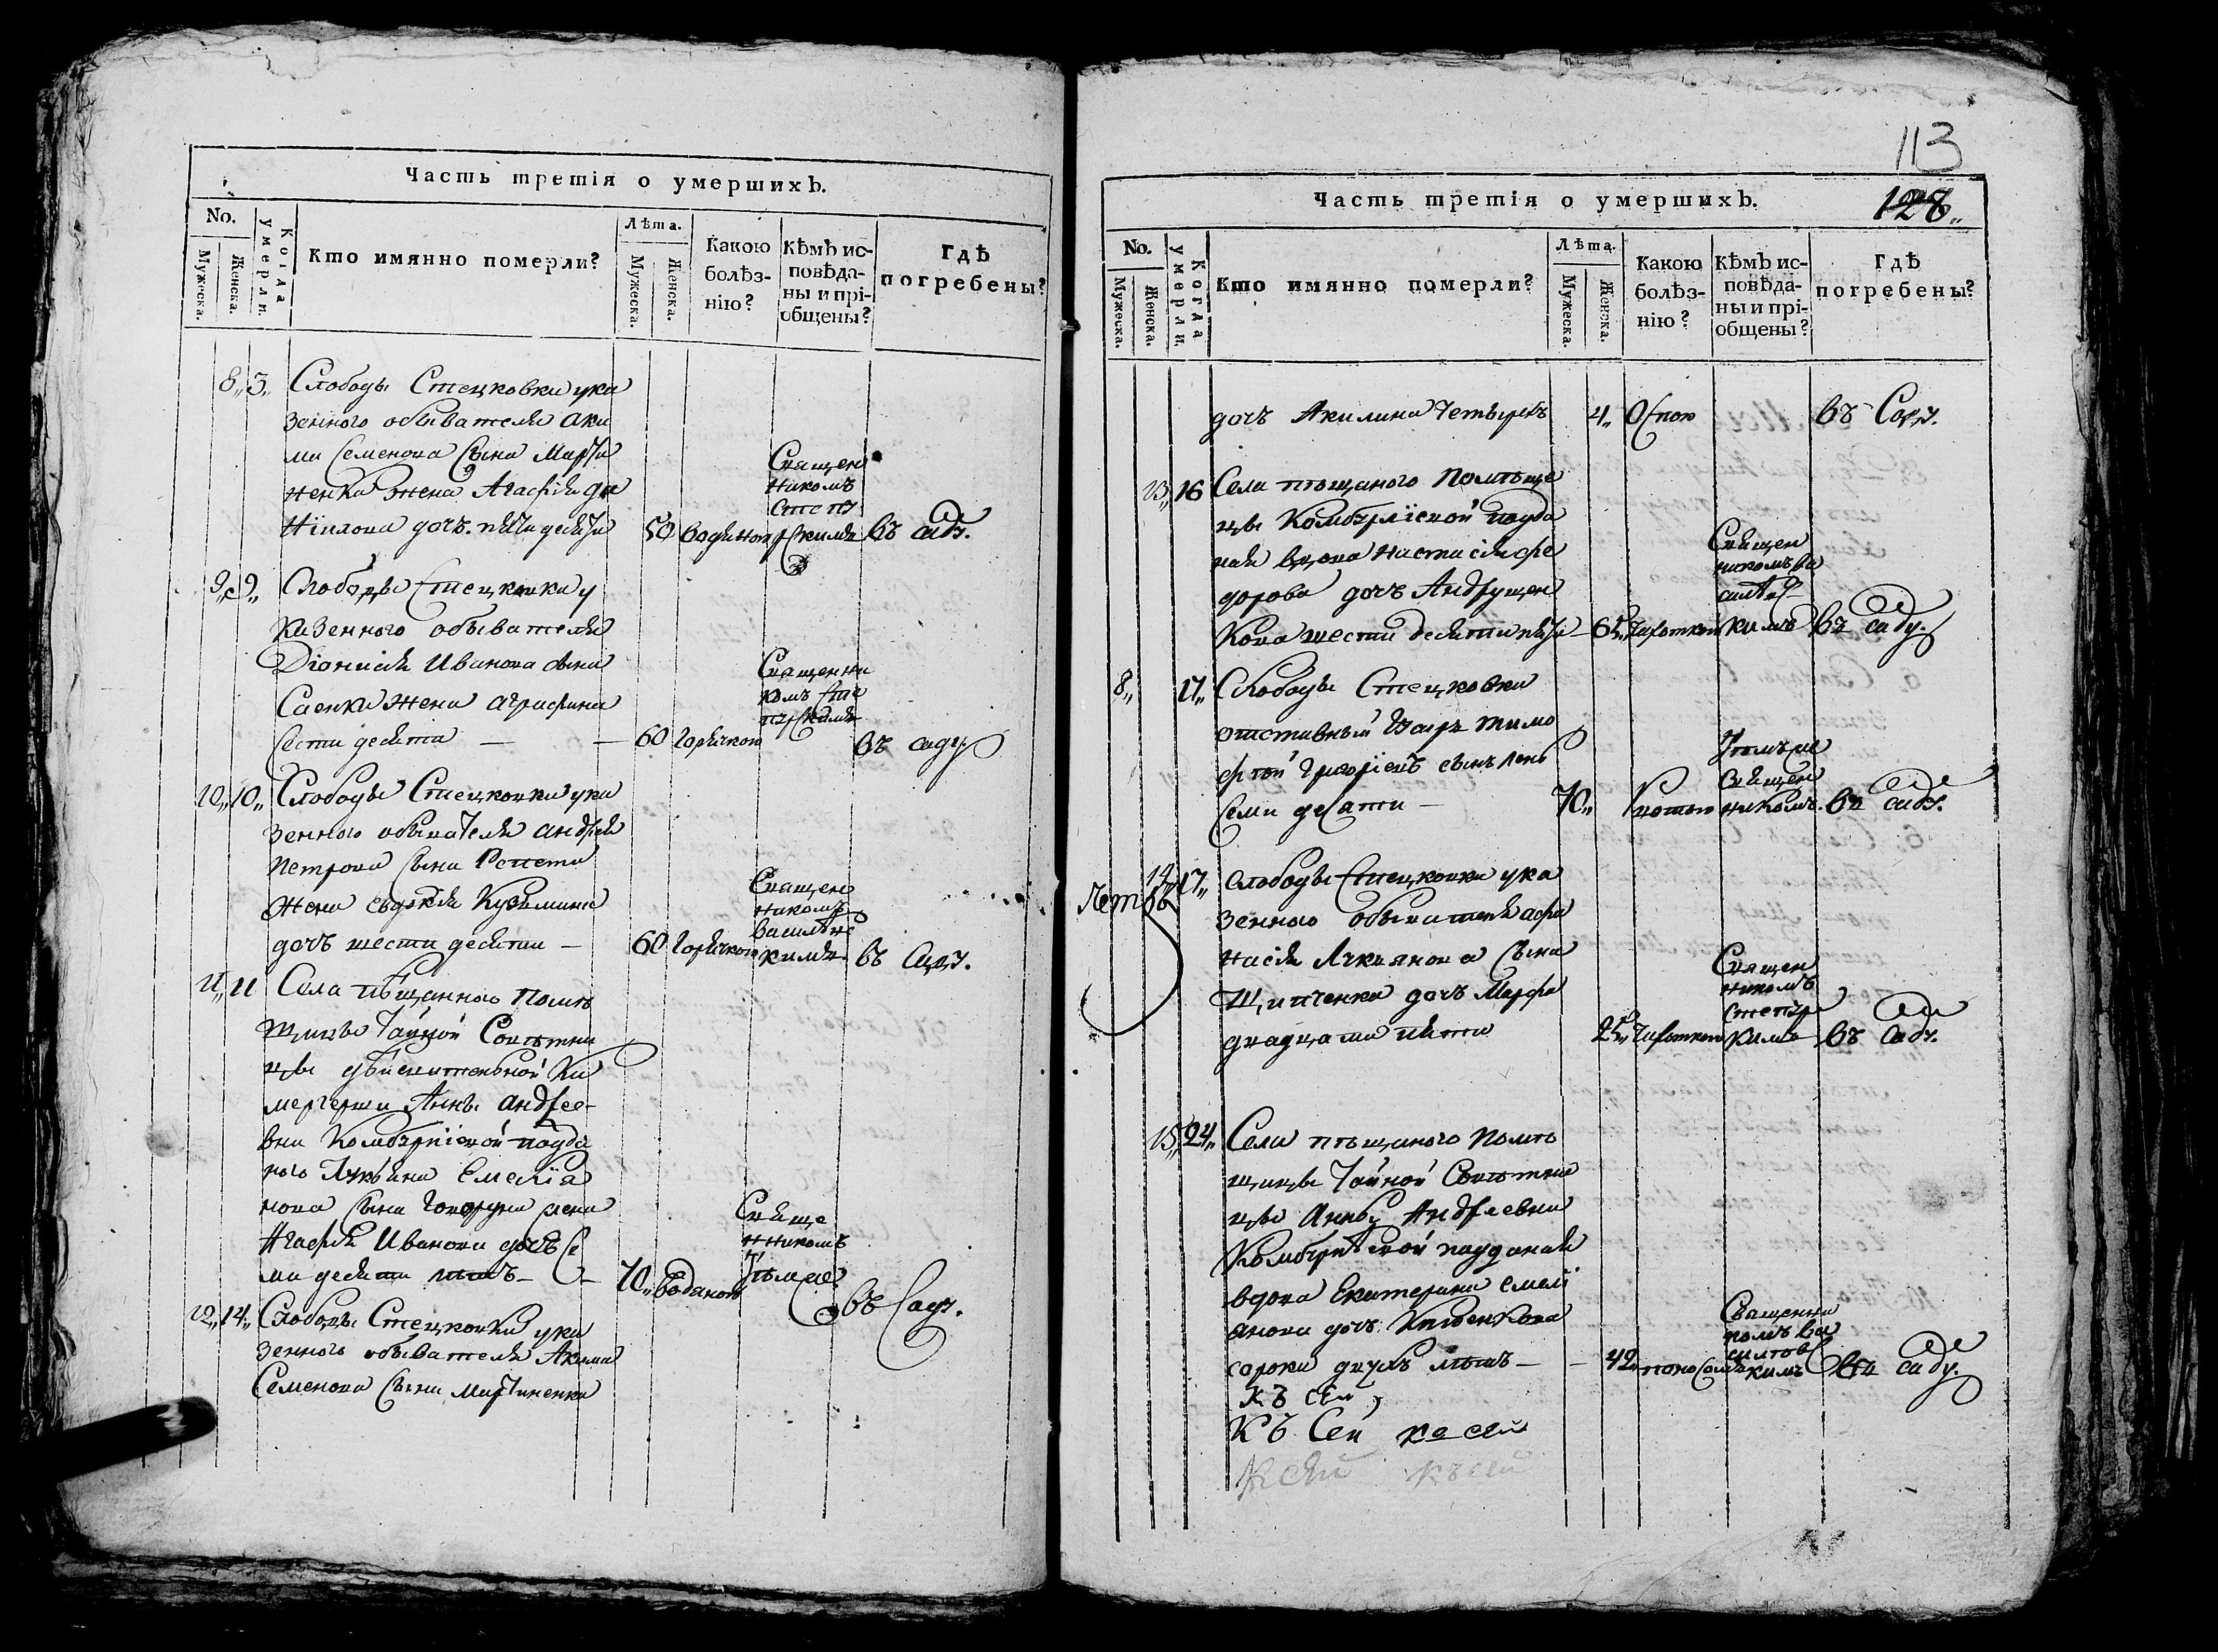 Часть третія о умершихъ.
No. Мужеска. Женска.
Когда умерли.
Кто имянно померли?
Лѣта. Мужеска. Женска.
Какою болѣз-
нію?
Кѣмъ ис-
повѣда-
ны и прі-
общены?
Гдѣ
погребены?
8„ 3„ Слободы Стецковки ука
зенного обывателя аки
ма Семенова сына Марти
ненка жена Агафія да
нiилова дочъ. пяти десяти 50 водяною въ саду.
Священ
никомъ
9„ 9„ Слободы Стецковки у
казенного обывателя
Діонисія Иванова сына
Саенка жена аграфина
сести десяти — — 60 Горячкою въ саду
Священни
комъ
10„ 10„ Слободы Стецковки ука
зенного обывателя андрея
петрова сына Репета
жена евдокія Кузмина
дочъ шести десяти — 60 Горячкою въ Саду.
Священ
никомъ
11„ 11 Села пѣщанного помѣ
щицы Тайной Совѣтни
цы дѣйсвителной Ка
мергерши Анны андрее-
вни Комбурлiевой подда
ного Лукьяна Емелiа
нова сына жена
Агафія Иванова дочъ се
ми десяти лѣтъ — 70„ Водяною въ Саду.
Свяще
нникомъ
12„ 14„ Слободы Стецковки ука
зенного обывателя Акима
Семенова сына Мартиненка
113
128„
Часть третія о умершихъ.
No. Мужеска. Женска.
Когда умерли.
Кто имянно померли?
Лѣта. Мужеска. Женска.
Какою
болѣз-
нію?
Кѣмъ ис-
повѣда-
ны и прі-
общены?
Гдѣ
погребены?
дочъ Акилина четырехъ 4„ Оспою въ Саду.
13„ 16 Села пѣщаного помѣще
цы Комбурлiевой подда
ная вдова настасія фе
дорова дочъ Андрущен
кова шести десяти пяти — 65„ Чихоткою въ саду.
Священ
никомъ ва
8„ 17„ Слободы Стецковки
отставный тимо
фтей Григоріевъ сынъ
семи десати — 70„ въ саду.
Священ
никомъ.
14 17„ Слободы Стецковки ука
зенного обывателя афа
насія Лукянова сына
Щипченка дочъ Марфа
двадцати пяти 25„ Чихоткою въ Саду.
Священ
никомъ
15„ 24„ Села пѣщаного помѣ
щицы Тайной Совѣтни
цы Анны Андреевни
Комбурлѣевой подданая
вдова Екатерина емелi
анова дочъ
сорока двухъ лѣтъ — — 42„ поносомъ въ саду.
Священни
комъ ва
къ сей
Къ Сей ко сей
къ сей къ сей